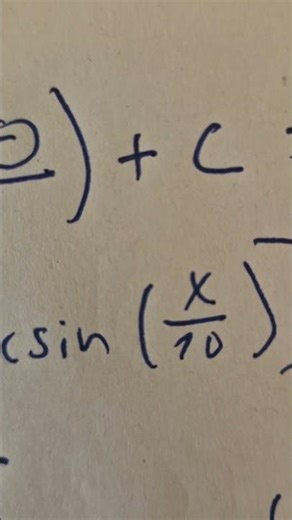 ) + C
csin (x/10)